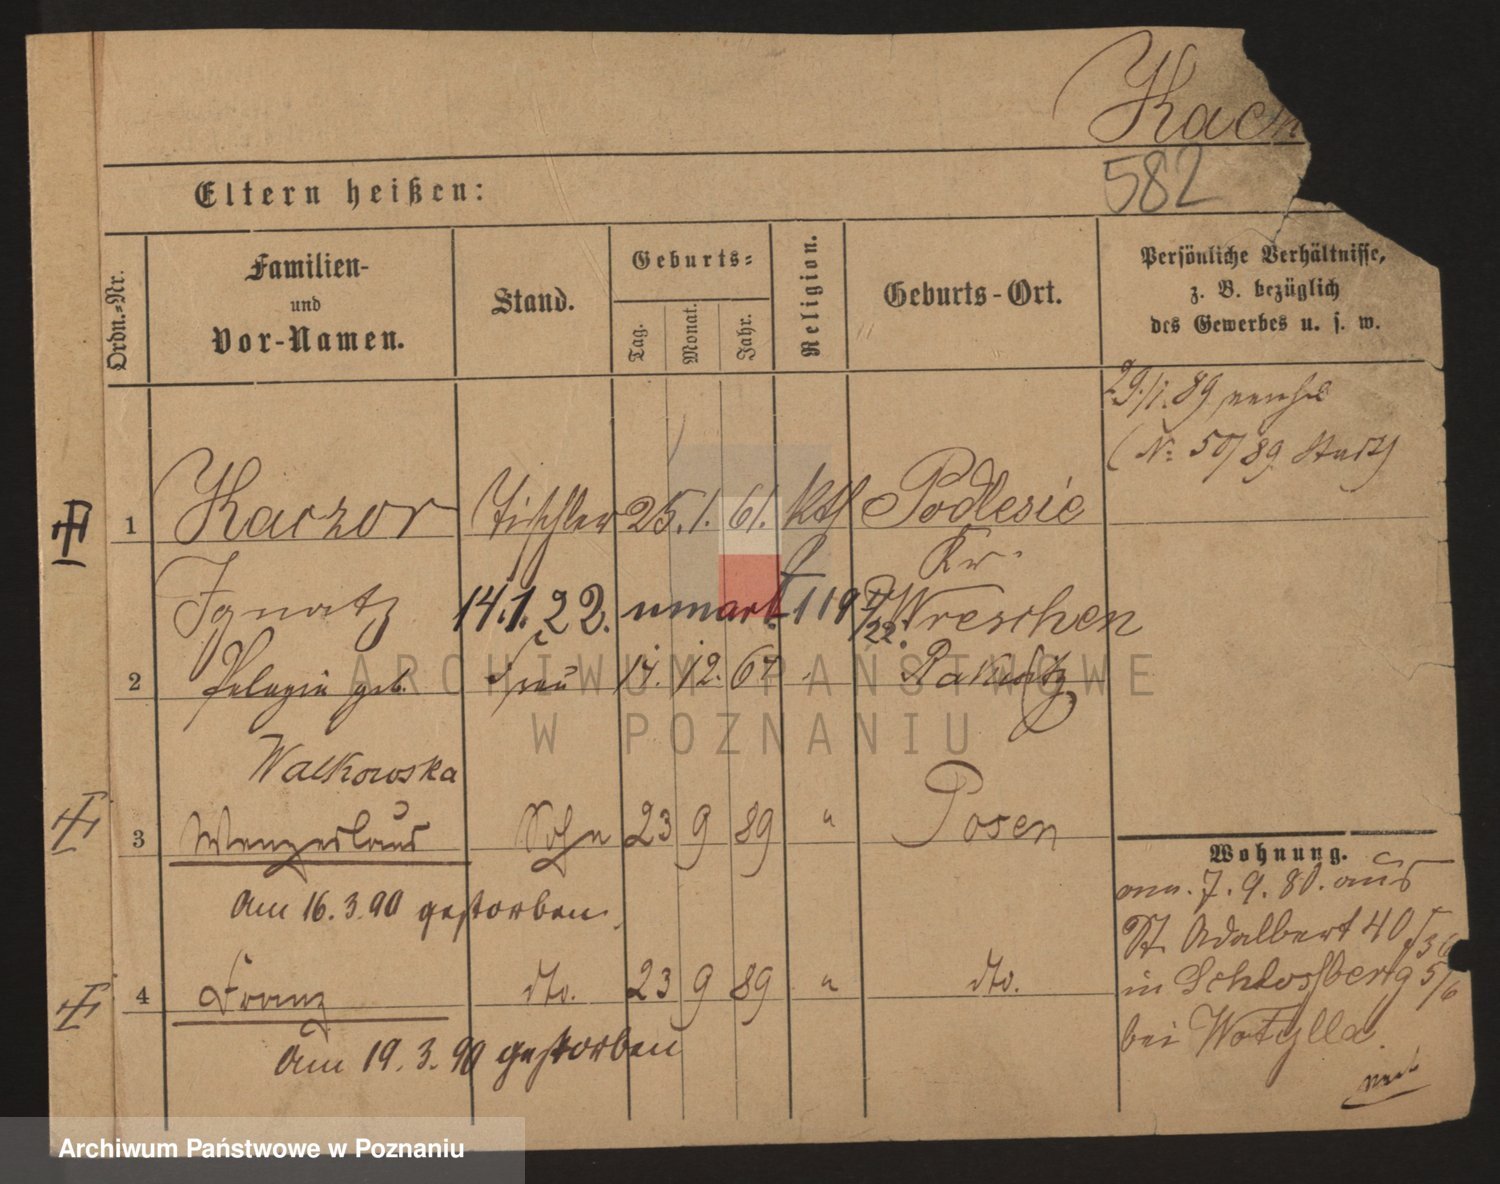 Kacz
582
Eltern heißen:
Ordn.-Nr.
Familien-
und
Vor-Namen.
Stand.
Geburts-
Tag.
Monat.
Jahr.
Religion.
Geburts-Ort.
Persönliche Verhältnisse,
z. B. bezüglich
des Gewerbes u. s. w.
29./1. 89
(No 50/89 Stadt)
1 Kaczor Tischler 25. 1. 61. kth Podlesie
Kr.
Ignatz 14.1.22. 119 Wreschen
22.
2 Pelagia geb. Frau 14. 12. 67 Rakwitz
Walkowska
3 Wenzeslaus Sohn 23 9 89 " Posen
Am 16.3.90 gestorben.
4 Franz dto. 23 9 89 " dto.
Am 19.3.90 gestorben
Wohnung.
am. 7. 9. 80. aus
St. Adalbert 40
in Schlossberg 5/6
bei Wotylla.
ARCHIWUM PAŃSTWOWE
W POZNANIU
Archiwum Państwowe w Poznaniu